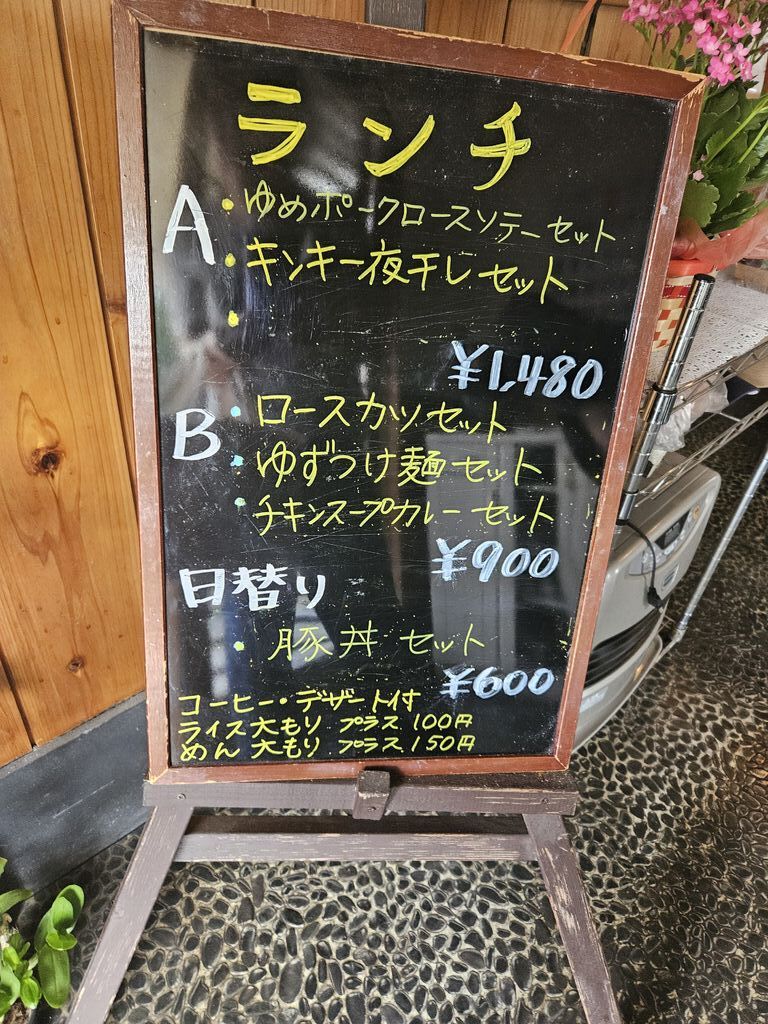 ランチ
A ・ゆめポークロースソテーセット
・キンキ一夜干しセット
・
¥1,480
B ・ロースカツセット
・ゆずつけ麺セット
・チキンスープカレーセット
¥900
日替り
・豚丼セット
¥600
コーヒー・デザート付
ライス大もり プラス 100円
めん 大もり プラス 150円